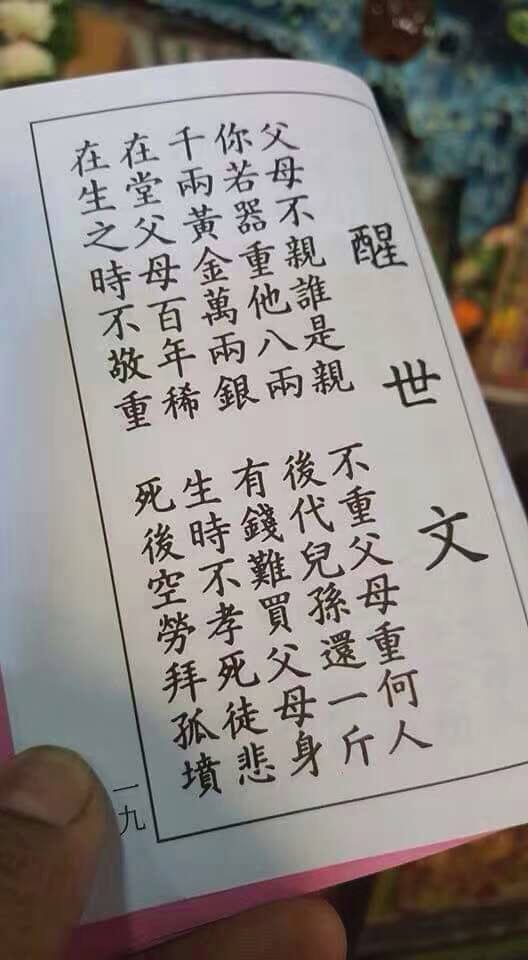 醒世文
父母不親誰是親 不重父母重何人
你若器重他八兩 後代兒孫還一斤
千兩黃金萬兩銀 有錢難買父母身
在堂父母百年稀 生時不孝死徒悲
在生之時不敬重 死後空勞拜孤墳
一九